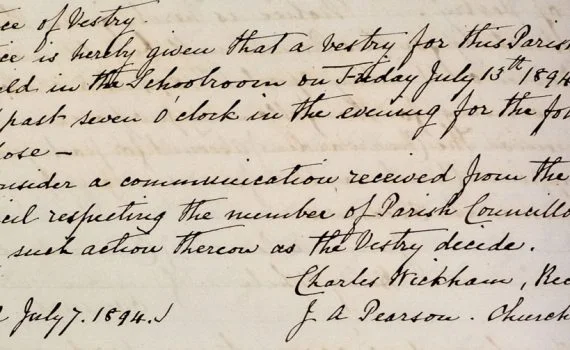 ce of Vestry.
ce is hereby given that a vestry for this Parish
eld in the Schoolroom on Friday July 13th 1894
past seven O'clock in the evening for the fo
ose —
onsider a communication received from the
cil respecting the number of Parish Councillo
such action thereon as the Vestry decide.
Charles Wickham, Rec
July 7. 1894.
J A Pearson. Church